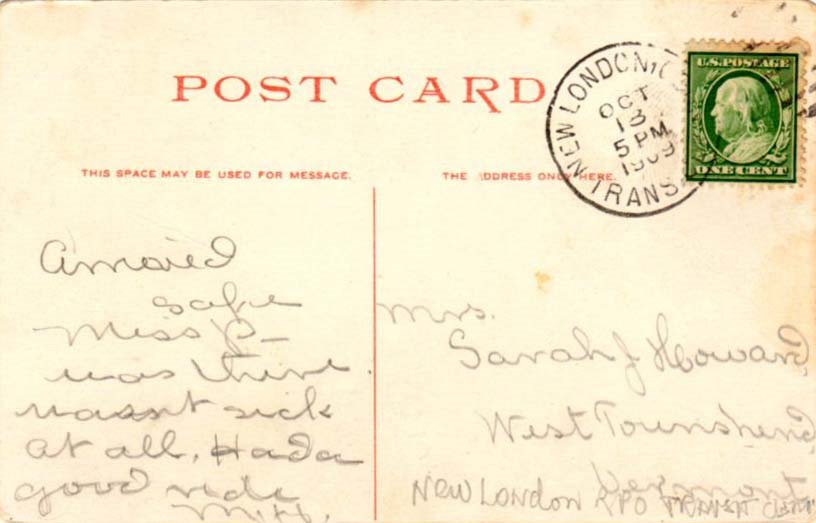 POST CARD
THIS SPACE MAY BE USED FOR MESSAGE.
THE ADDRESS ONLY HERE.
NEW LONDON,
OCT
13
5 PM
1909
TRANS.
U.S. POSTAGE
ONE CENT
Arrived
safe
Miss P–
was there.
wasnt sick
at all. Had a
good ride
M.H.
Mrs.
Sarah J Howard,
West Townshend,
Vermont
NEW LONDON RPO TRANSIT